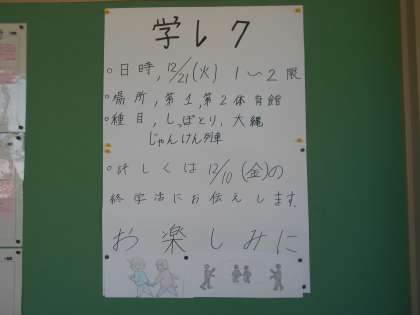 学レク
○日時, 12/21(火) 1〜2限
○場所, 第1, 第2体育館
○種目, しっぽとり, 大縄
じゃんけん列車
○詳しくは12/10(金)の
終学活にお伝えします.
お楽しみに